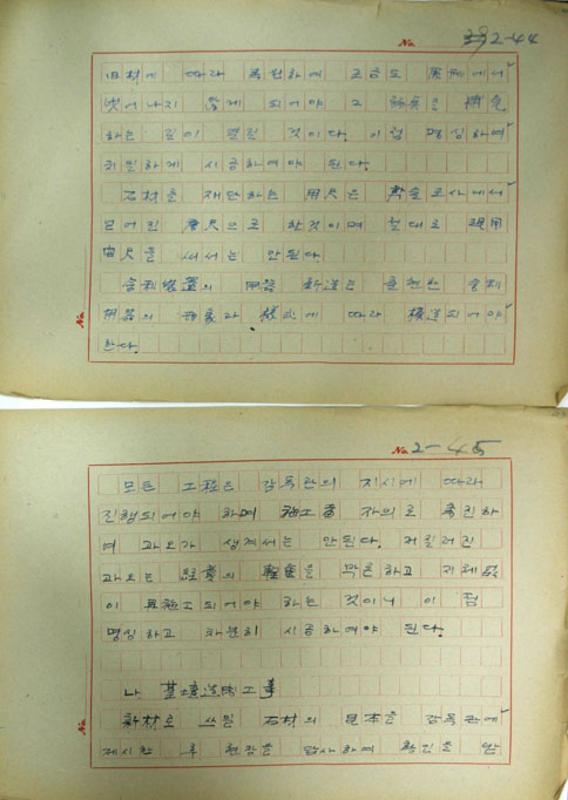 No. 2-44
旧材에 따라 복원하여 조금도 原形에서
벗어나지 않게 되어야 그
하는 길이 열릴 것이다. 이점 명심하여
치밀하게 시공하여야 된다.
石材를 재단하는 用尺은 학술조사에서
얻어진 唐尺으로 한것이며 절대로 現用
曲尺을 써서는 안된다.
舍利 의 用器 新造는 출현한 舍利
用器의 形象과 에 따라 模造되어야
한다.
No.
No. 2-45
모든 工程은 감독관의 지시에 따라
진행되어야 하며 施工者 자의로 촉진하
여 과오가 생겨서는 안된다. 저질러진
과오는 의 輕重을 막론하고 지체없
이 再施工되어야 하는 것이니 이 점
명심하고 차분히 시공하여야 된다.
나 基壇 工事
新材로 쓰일 石材의 見本을 감독관에
제시한 후 현장을 답사하여 확인을 받
No.